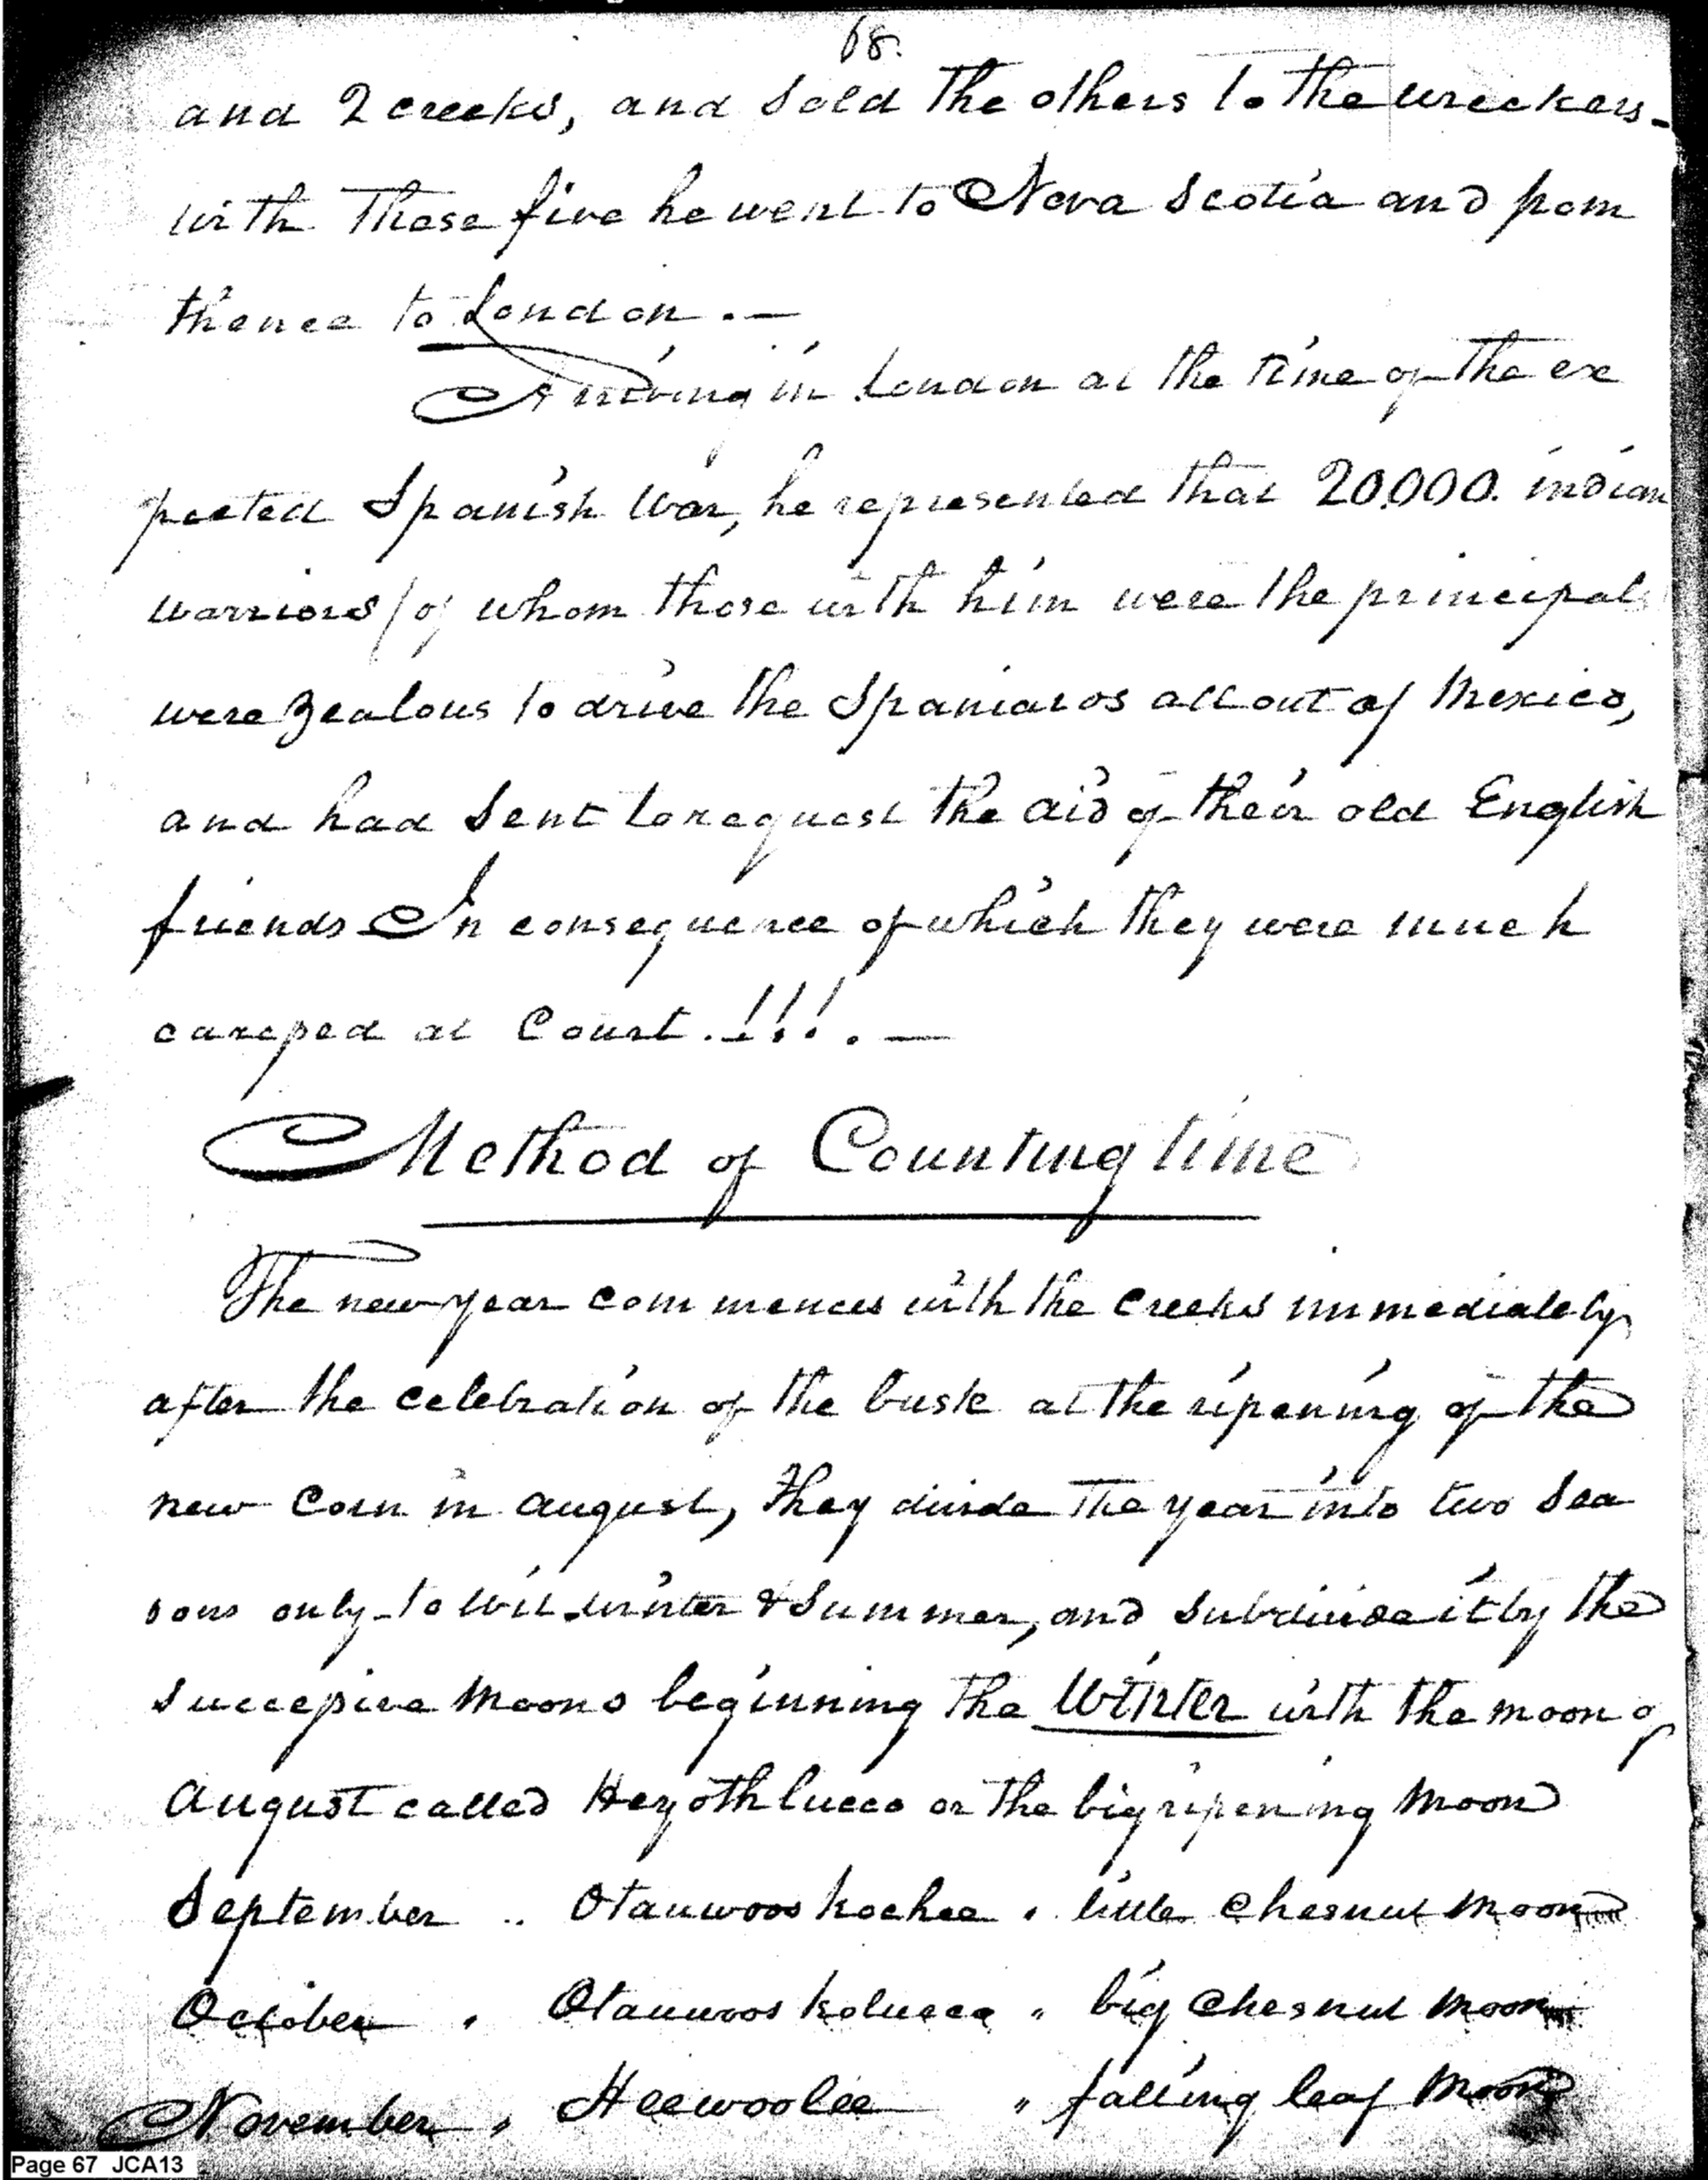 68.
and 2 creeks, and sold the others to the wreckers -
with these five he went to Nova Scotia and from
thence to London . —
Arriving in London at the time of the ex
pected Spanish War, he represented that 20.000. indian
warriors / of whom those with him were the principals
were zealous to drive the Spaniards all out of Mexico,
and had sent to request the aid of their old English
friends In consequence of which they were much
caressed at Court . !!! . —
Method of Counting time
The new year commences with the creeks immediately
after the celebration of the busk at the ripening of the
new Corn in august, they divide the year into two sea
sons only - to wit - winter & Summer, and subdivide it by the
successive moons beginning the Winter with the moon of
August called Heyothlucco or the big ripening Moon
September .. Otauwooskochee . little chesnut moon
October . Otauwooskolucco " big chesnut moon
November , Heewoolee " falling leaf moon
Page 67 JCA13